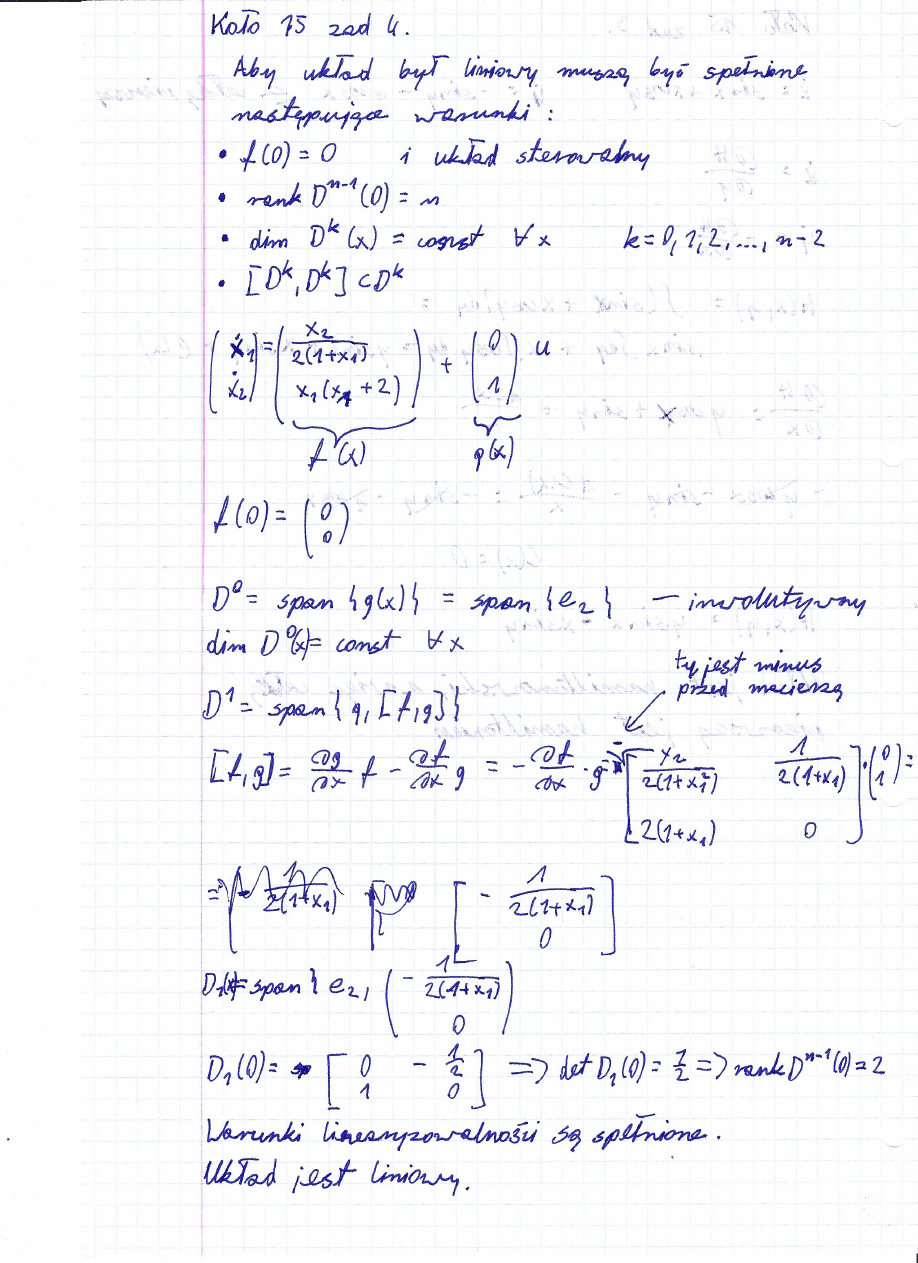 Koło 15 zad 4.
Aby układ był liniowy muszą być spełnione
następujące warunki :
• f(0) = 0 i układ sterowalny
• rank D^{n-1}(0) = n
• dim D^k(x) = const ∀x k = 0, 1, 2, ..., n-2
• [D^k, D^k] ⊂ D^k
(ẋ₁ ẋ₂) = (x₂/(2(1+x₁)) x₁(x₁+2)) + (0 1) u
f(x) g(x)
f(0) = (0 0)
D⁰ = span {g(x)} = span {e₂} — inwolutywny
dim D⁰(x) = const ∀x
tu jest minus
przed macierzą
D¹ = span {g, [f,g]}
[f,g] = ∂g/∂x f - ∂f/∂x g = - ∂f/∂x · g = - [x₂/(2(1+x₁²) 1/(2(1+x₁)) 2(1+x₁) 0] · (0 1) =
= [- 1/(2(1+x₁)) 0]
D₁(x) = span { e₂, (- 1/(2(1+x₁)) 0)
D₁(0) = [0 -1/2 1 0] => det D₁(0) = 1/2 => rank D^{n-1}(0) = 2
Warunki linearyzowalności są spełnione.
Układ jest liniowy.